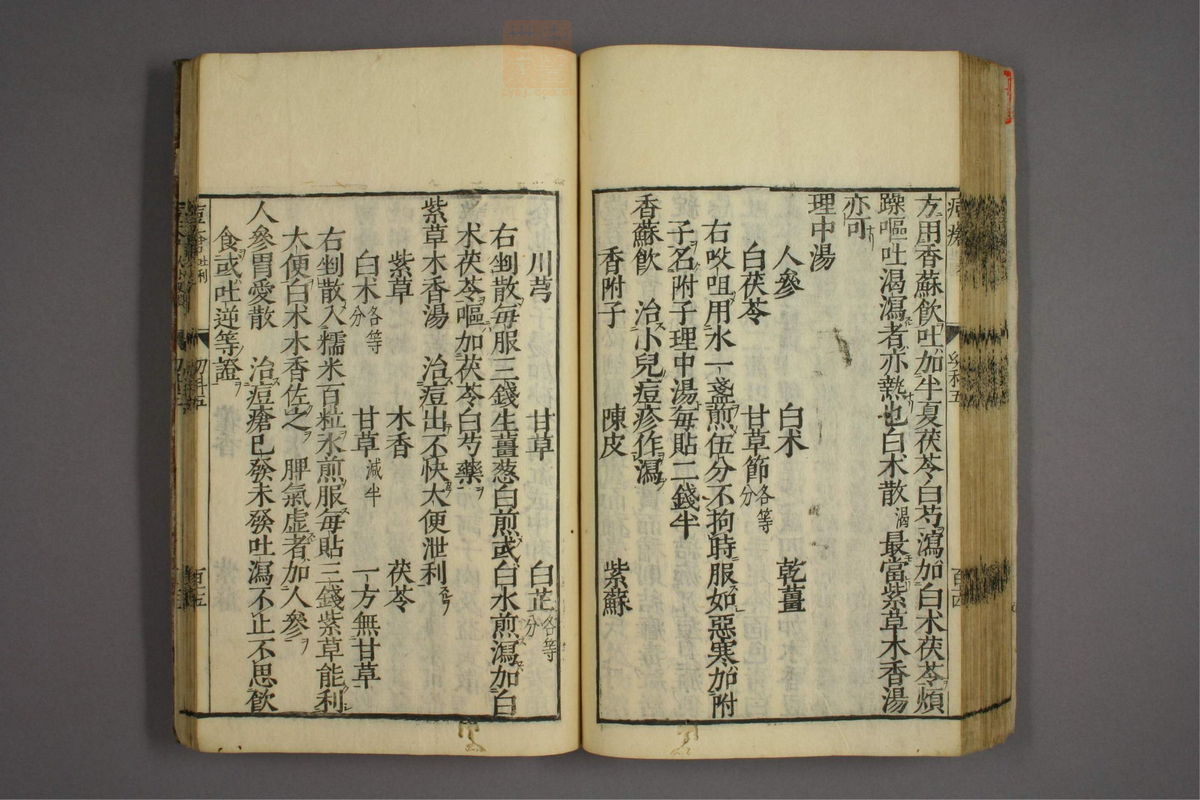 方用香蘇飲吐加半夏茯苓白芍瀉加白术茯苓煩
躁嘔吐渴瀉者亦熱也白术散渴最當紫草木香湯
亦可
理中湯
人參 白术 乾薑
白茯苓 甘草節各等分
右㕮咀用水一盞煎伍分不拘時服如惡寒加附
子名附子理中湯每貼二錢半
香蘇飲 治小兒痘疹作瀉
香附子 陳皮 紫蘇
川芎 甘草 白芷各等分
右剉散每服三錢生薑葱白煎或白水煎瀉加白
术茯苓嘔加茯苓白芍藥
紫草木香湯 治痘出不快大便泄利
紫草 木香 茯苓
白术各等分 甘草減半 一方無甘草
右剉散入糯米百粒水煎服每貼三錢紫草能利
大便白术木香佐之 脾氣虛者加人參
人參胃愛散 治痘瘡已發未發吐瀉不止不思飲
食或吐逆等證